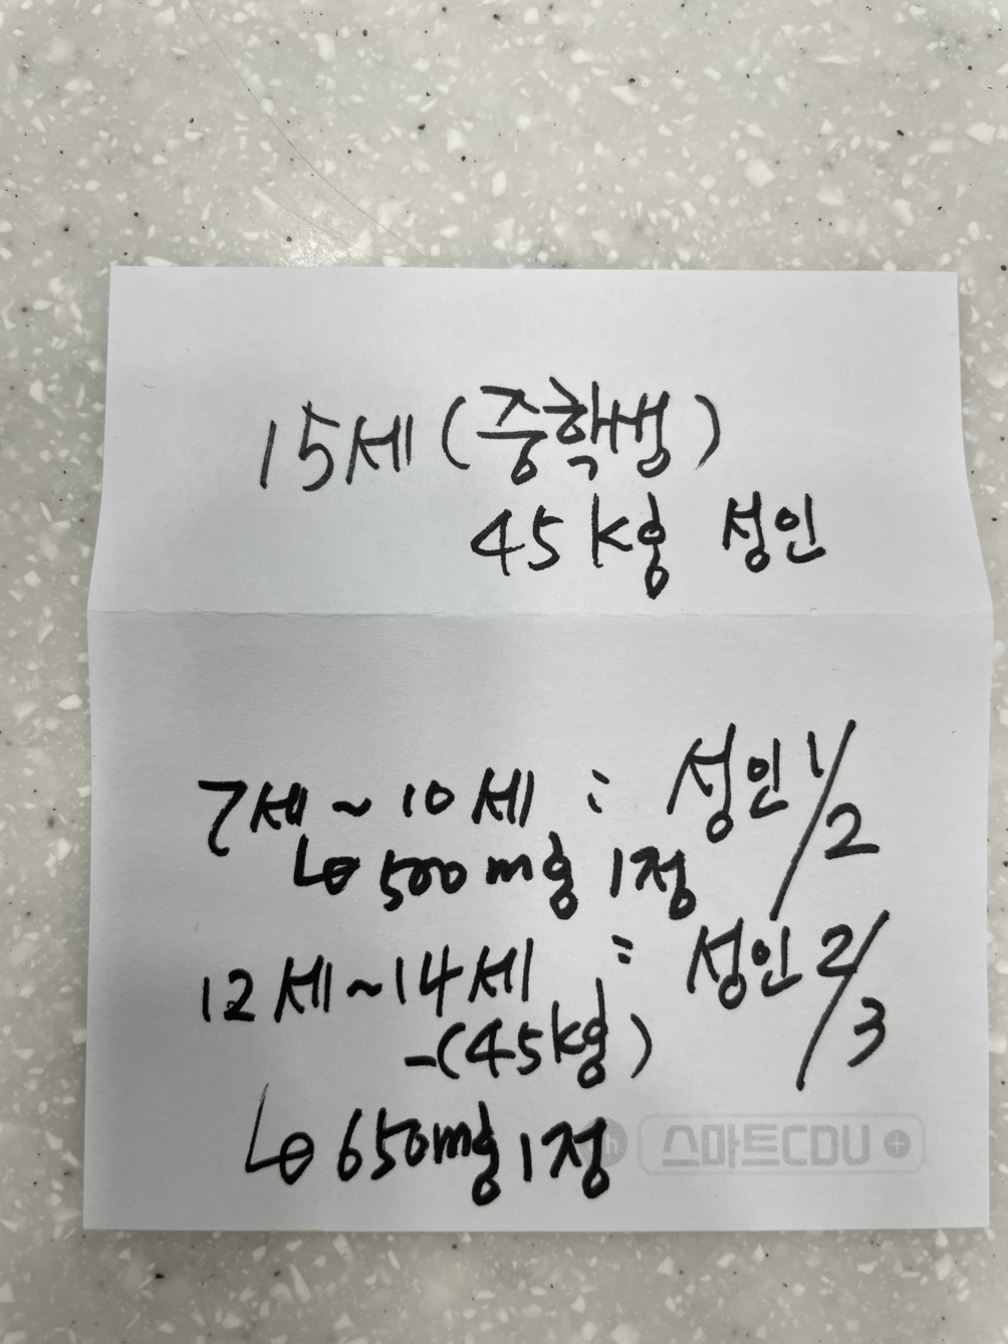 15세 (중학생)
45kg 성인
7세 ~ 10세 : 성인 1/2
↳ 500mg 1정
12세 ~ 14세 : 성인 2/3
-(45kg)
↳ 650mg 1정
스마트CDU